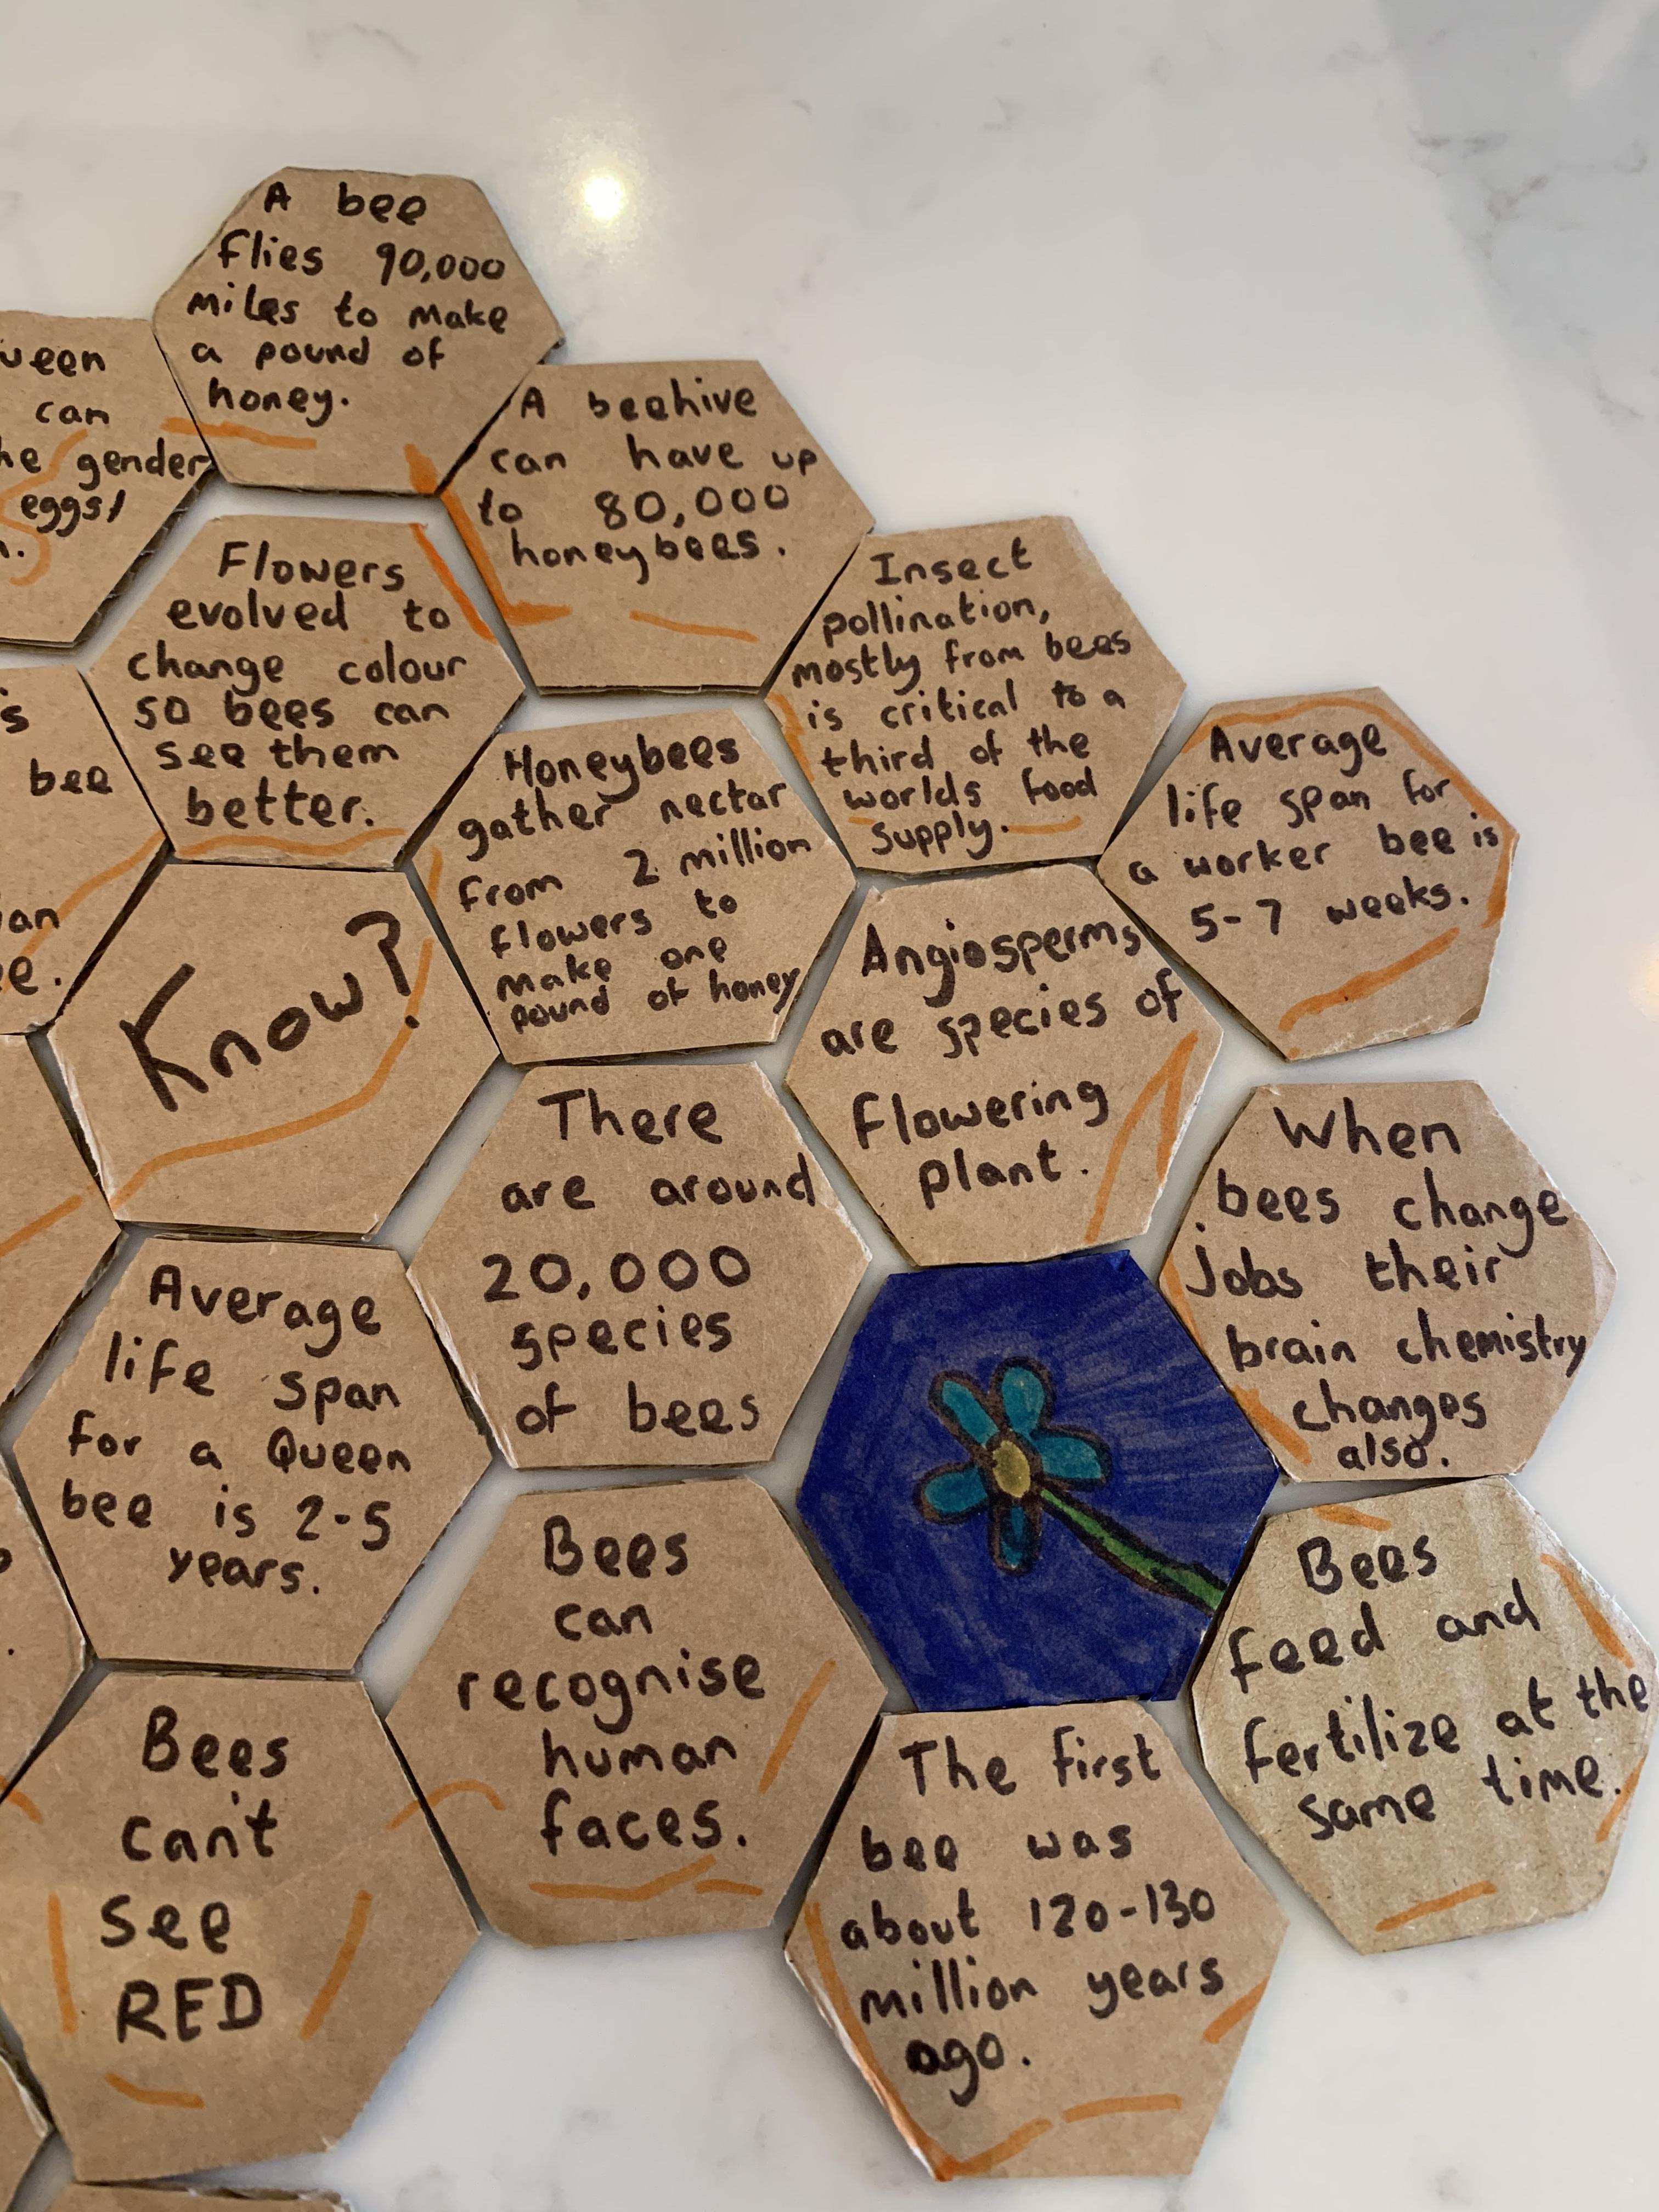 A bee
flies 90,000
miles to make
a pound of
honey.
ueen
can
he gender
eggs/
A beehive
can have up
to 80,000
honeybees.
Flowers
evolved to
change colour
so bees can
see them
better.
Insect
pollination,
mostly from bees
is critical to a
third of the
worlds food
supply.
's
bee
an
ee.
Honeybees
gather nectar
from 2 million
flowers to
make one
pound of honey
Average
life span for
a worker bee is
5-7 weeks.
Know?
Angiosperms
are species of
flowering
plant.
There
are around
20,000
species
of bees
When
bees change
jobs their
brain chemistry
changes
also.
Average
life span
for a Queen
bee is 2-5
years.
Bees
can
recognise
human
faces.
Bees
feed and
fertilize at the
same time.
Bees
can't
see
RED
The first
bee was
about 120-130
million years
ago.